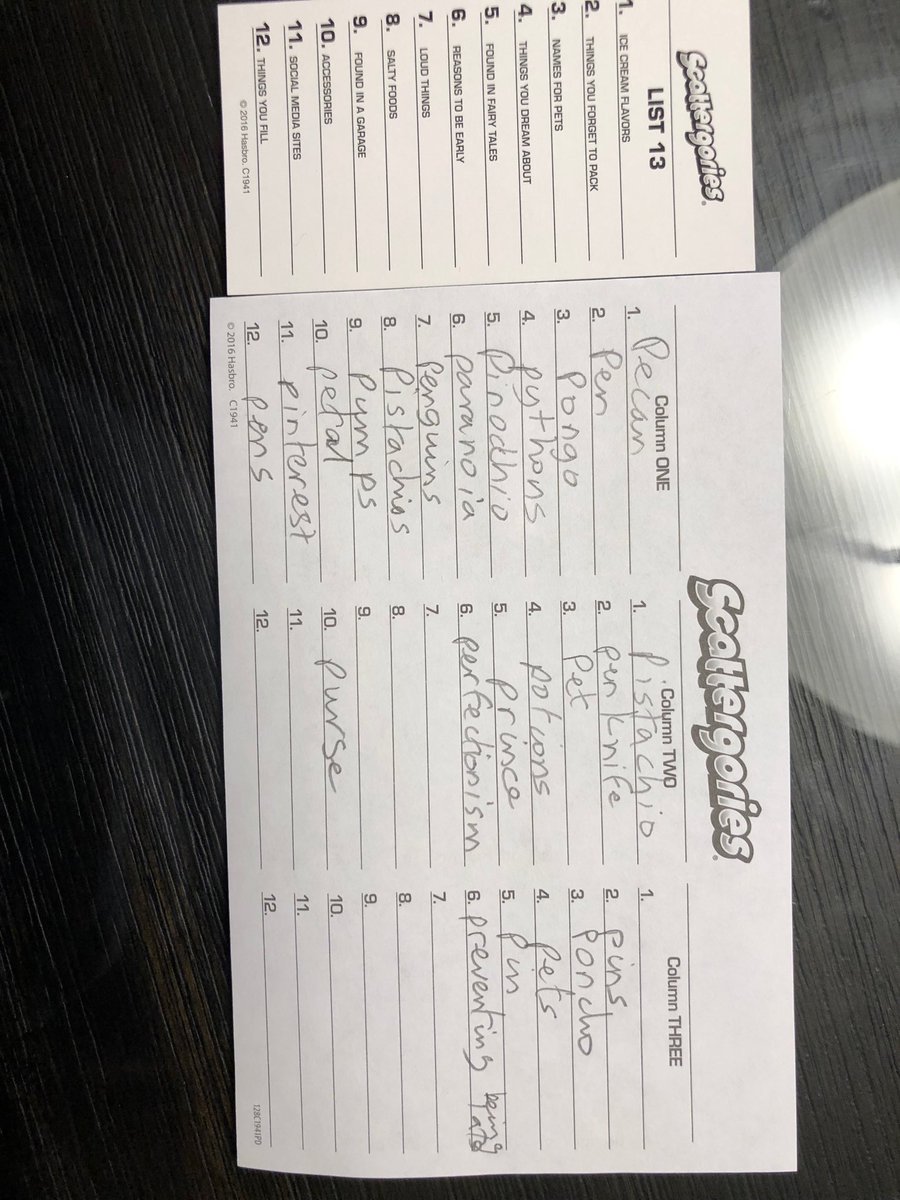 Scattergories®
LIST 13
1. ICE CREAM FLAVORS
2. THINGS YOU FORGET TO PACK
3. NAMES FOR PETS
4. THINGS YOU DREAM ABOUT
5. FOUND IN FAIRY TALES
6. REASONS TO BE EARLY
7. LOUD THINGS
8. SALTY FOODS
9. FOUND IN A GARAGE
10. ACCESSORIES
11. SOCIAL MEDIA SITES
12. THINGS YOU FILL
© 2016 Hasbro. C1941
Scattergories®
Column ONE
1. Pecan
2. Pen
3. Pongo
4. pythons
5. Pinocchio
6. paranoia
7. Penguins
8. Pistachios
9. Pumps
10. petal
11. pinterest
12. pens
© 2016 Hasbro. C1941
Column TWO
1. Pistachio
2. penknife
3. Pet
4. potions
5. prince
6. perfectionism
7.
8.
9.
10. purse
11.
12.
Column THREE
1.
2. pins
3. poncho
4. pets
5. pin
6. preventing being late
7.
8.
9.
10.
11.
12.
128C1941PD